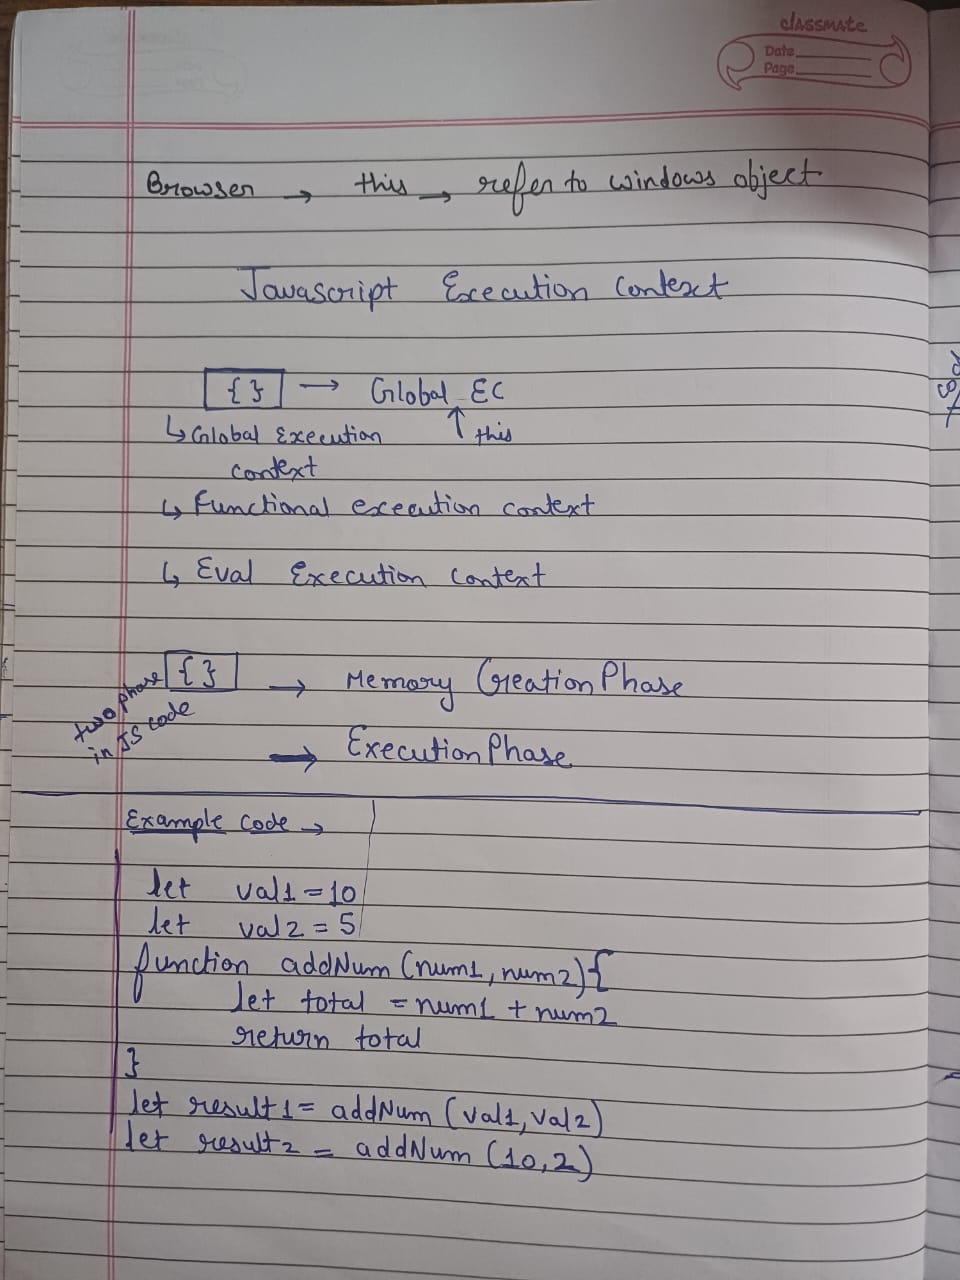 classmate
Date
Page
Browser → this → refer to windows object
Javascript Execution Context
{ } → Global EC
↳ Global Execution ↑ this
context
↳ Functional execution context
↳ Eval Execution Context
two phase in JS code
{ } → Memory Creation Phase
→ Execution Phase
Example code →
let val1 = 10
let val2 = 5
function addNum (num1, num2) {
let total = num1 + num2
return total
}
let result1 = addNum (val1, val2)
let result2 = addNum (10, 2)